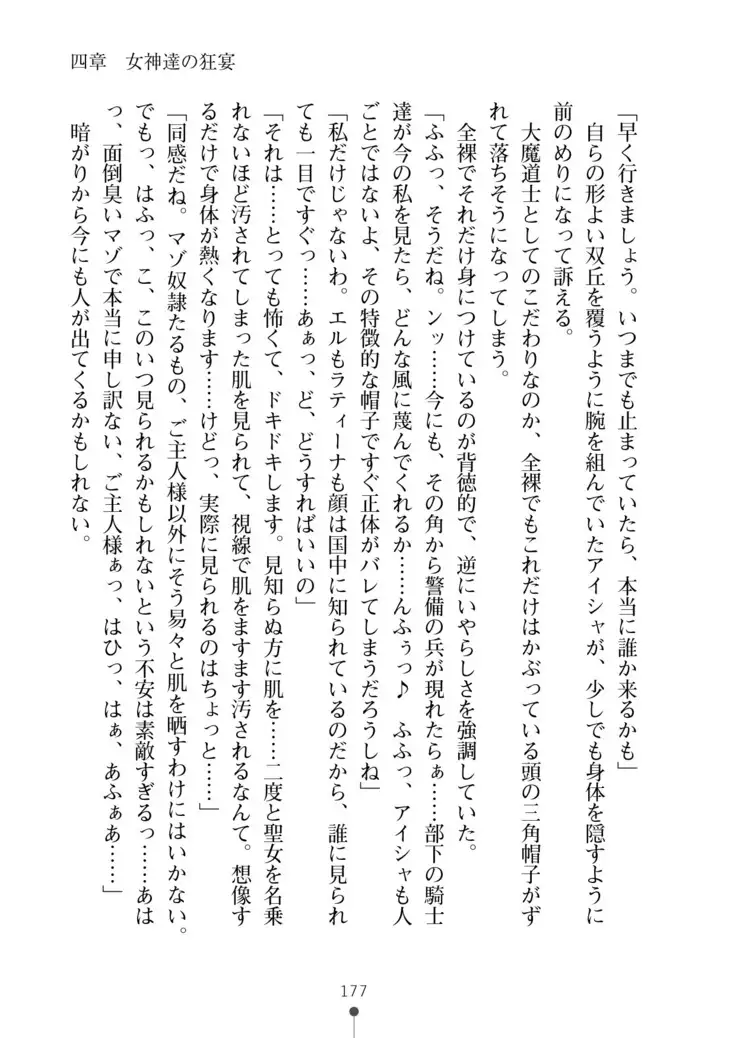 四章　女神達の狂宴
「早く行きましょう。いつまでも止まっていたら、本当に誰か来るかも」
　自らの形よい双丘を覆うように腕を組んでいたアイシャが、少しでも身体を隠すように
前のめりになって訴える。
　大魔道士としてのこだわりなのか、全裸でもこれだけはかぶっている頭の三角帽子がず
れて落ちそうになってしまう。
　全裸でそれだけ身につけているのが背徳的で、逆にいやらしさを強調していた。
「ふふっ、そうだね。ンッ……今にも、その角から警備の兵が現れたらぁ……部下の騎士
達が今の私を見たら、どんな風に蔑んでくれるか……んふぅっ♪　ふふっ、アイシャも人
ごとではないよ、その特徴的な帽子ですぐ正体がバレてしまうだろうしね」
「私だけじゃないわ。エルもラティーナも顔は国中に知られているのだから、誰に見られ
ても一目ですぐっ……あぁっ、ど、どうすればいいの」
「それは……とっても怖くて、ドキドキします。見知らぬ方に肌を……二度と聖女を名乗
れないほど汚されてしまった肌を見られて、視線で肌をますます汚されるなんて。想像す
るだけで身体が熱くなります……けどっ、実際に見られるのはちょっと……」
「同感だね。マゾ奴隷たるもの、ご主人様以外にそう易々と肌を晒すわけにはいかない。
でもっ、はふっ、こ、このいつ見られるかもしれないという不安は素敵すぎるっ……あは
っ、面倒臭いマゾで本当に申し訳ない、ご主人様ぁっ、はひっ、はぁ、あふぁあ……」
　暗がりから今にも人が出てくるかもしれない。
177